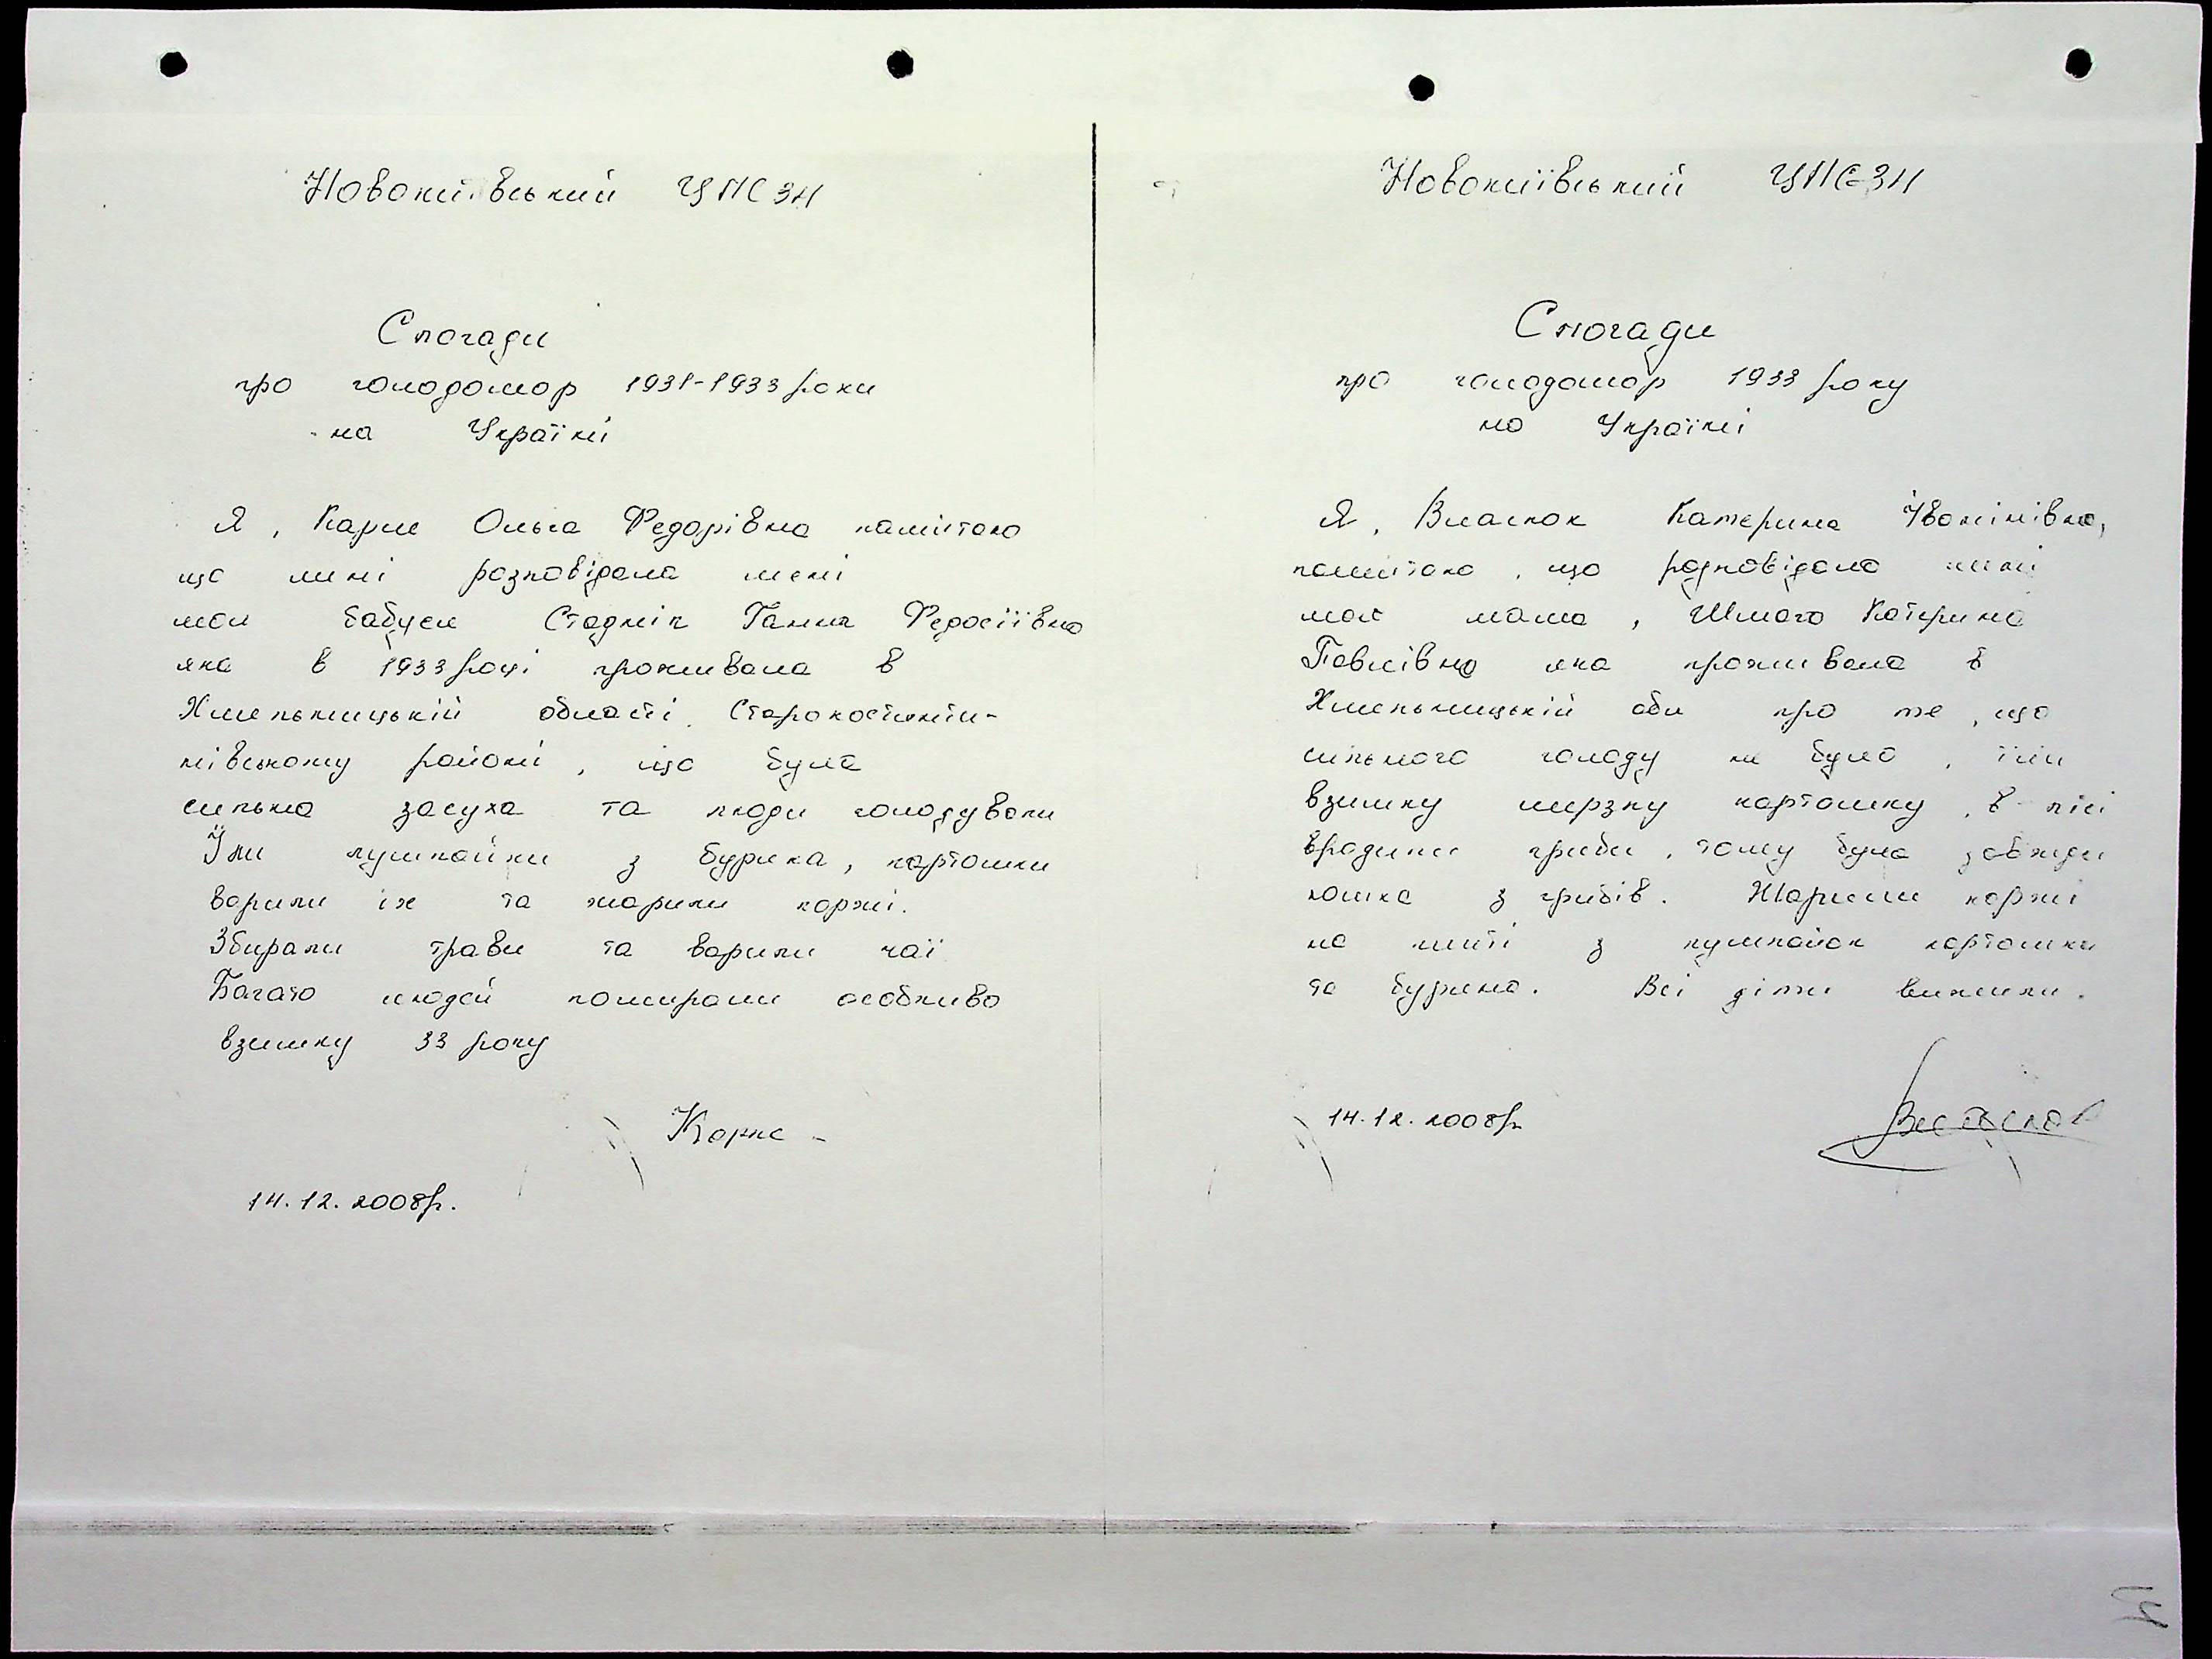 Новокиївський ЦПСЗН
Спогади
про голодомор 1931-1933 роки
на Україні
Я, Карпе Ольга Федорівна памʼятаю
що мині розповідала мені
моя бабуся Стаднік Ганна Федосіївна
яка в 1933 році проживала в
Хмельницькій області Старокостянти-
нівському районі, що була
сильна засуха та люди голодували
Їли лушпайки з буряка, картошки
варили їх та жарили коржі.
Збирали трави та варили чаї
Багато людей помирали особливо
взимку 33 року
14.12.2008р.
Новокиївський ЦПСЗН
Спогади
про голодомор 1933 року
на Україні
Я, Власюк Катерина
памʼятаю, що розповідала мені
моя мама, Катерина
Павлівна яка проживала в
Хмельницькій обл про те, що
сильного голоду не було, їли
взимку мерзлу картошку, в лісі
вродили гриби, тому була завжди
юшка з грибів. Жарили коржі
на плиті з лушпайок картошки
та буряка. Всі діти вижили.
14.12.2008р